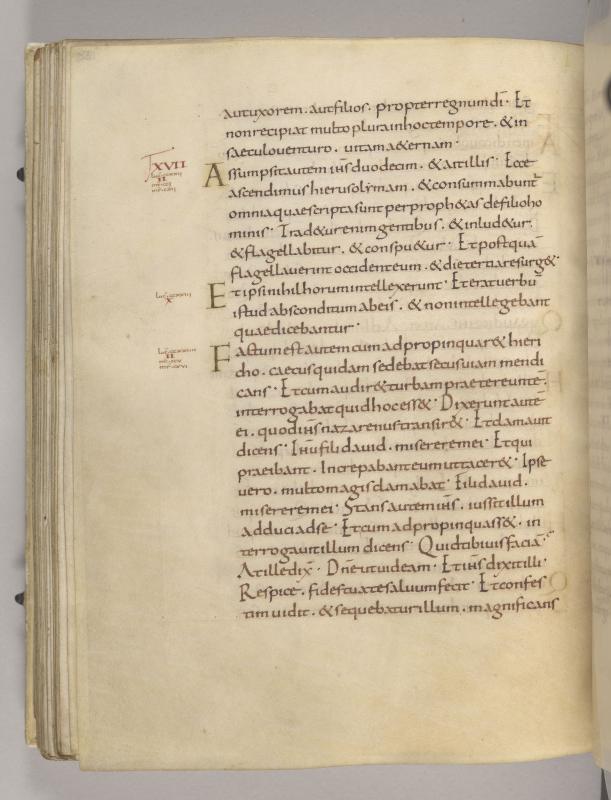 aut uxorem. aut filios. propter regnum dī. Et
non recipiat multo plura in hoc tempore. & in
saeculo venturo. vitam aeternam.
XVII
Assumpsit autem ihs duodecim. & ait illis. Ecce
ascendimus hierusolymam. & consummabunt̄
omnia quae scripta sunt per proph&as de filio ho
minis. Trad&ur enim gentibus. & inlud&ur.
& flagellabitur. & conspu&ur. Et postquā
flagellaverint occident eum. & die tertia resurg&.
X
Et ipsi nihil horum intellexerunt. Et erat verbū
istud absconditum ab eis. & non intellegebant
quae dicebantur.
II
Factum est autem cum adpropinquar& hieri
cho. caecus quidam sedebat secus viam mendi
cans. Et cum audir& turbam praetereuntē.
interrogabat quid hoc ess&. Dixerunt autē
ei. quod ihs nazarenus transir&. Et clamavit
dicens. Ihū fili david. miserere mei. Et qui
praeibant. Increpabant eum ut tacer&. Ipse
vero. multo magis clamabat. Fili david.
miserere mei. Stans autem ihs. iussit illum
adduci ad se. Et cum adpropinquass&. in
terrogavit illum dicens. Quid tibi vis faciā.
At ille dix̄. Dn̄e ut videam. Et ihs dixit illi.
Respice. fides tua te salvum fecit. Et confes
tim vidit. & sequebatur illum. magnificans